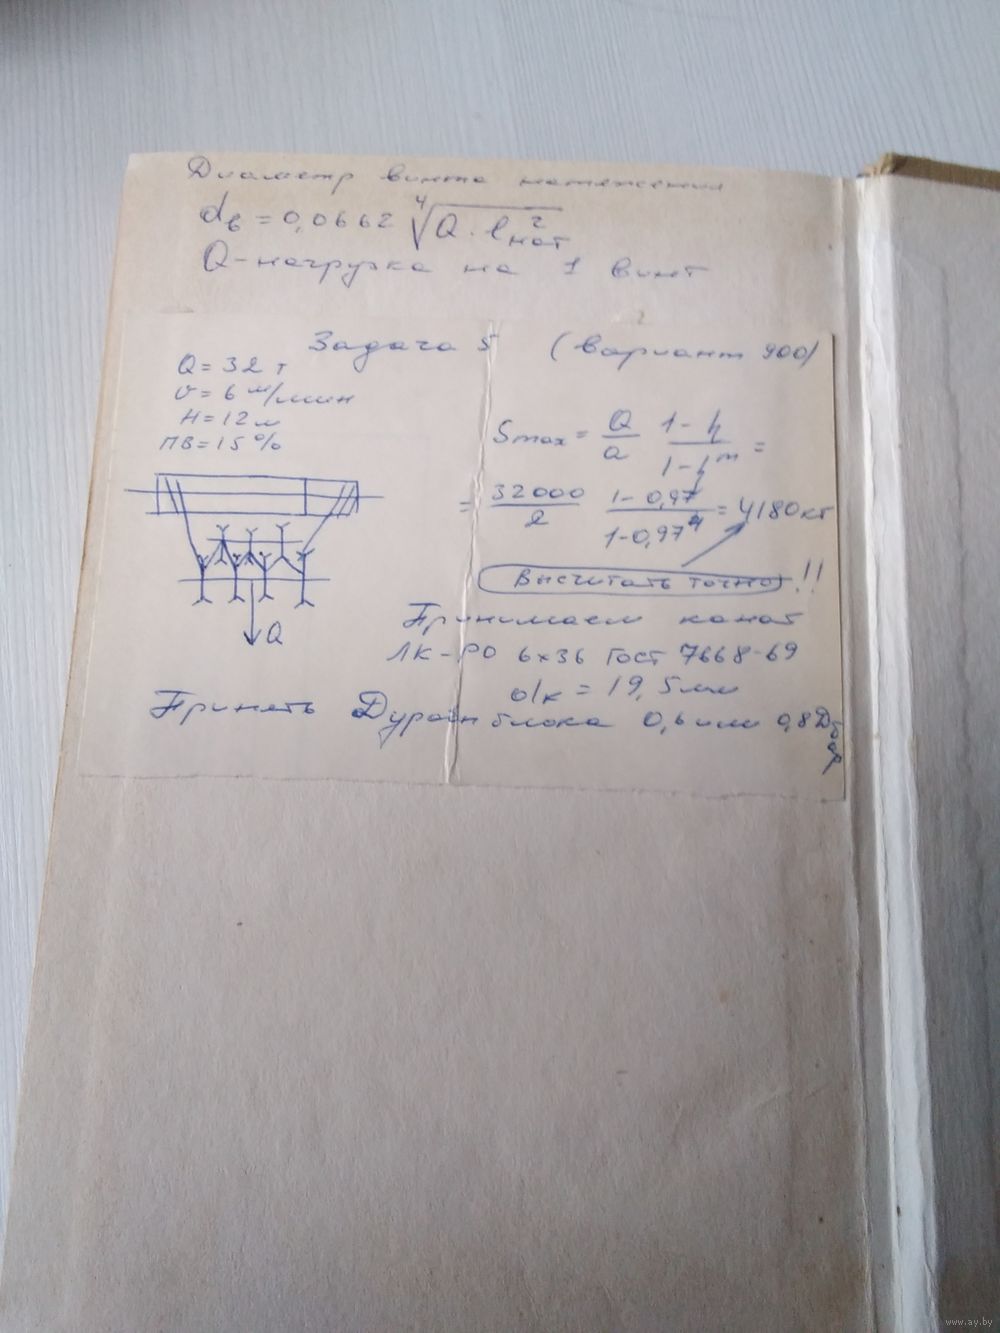 Диаметр винта натяжения
dв = 0,0662 ∜(Q · l²нат)
Q – нагрузка на 1 винт
Задача 5 (вариант 900)
Q = 32 т
v = 6 м/мин
H = 12 м
ПВ = 15 %
Smax = Q/a (1-η)/(1-η^m) =
= 32000/2 (1-0,97)/(1-0,97⁴) = 4180 кг
Высчитать точно !!
Q
Принимаем канат
ЛК-РО 6х36 Гост 7668-69
dк = 19,5 мм
Принять Dуравн блока 0,6 или 0,8 Dбар
www.ay.by